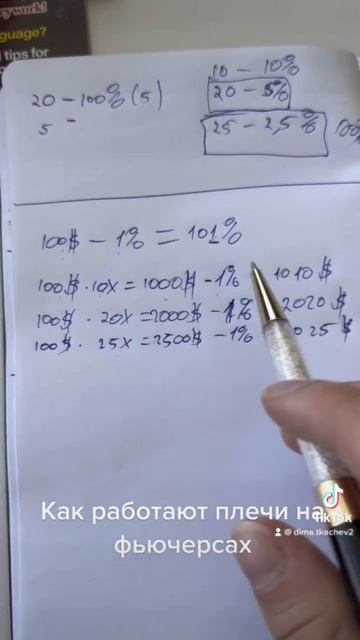 guage?
tips for
10 – 10%
20 – 100% (5)
20 – 5%
5 –
25 – 2,5%
100$ – 1% = 101%
100$ · 10x = 1000$ – 1% 1010$
100$ · 20x = 2000$ – 1% 2020$
100$ · 25x = 2500$ – 1% 025$
Как работают плечи на
фьючерсах
TikTok
@dima.tkachev2